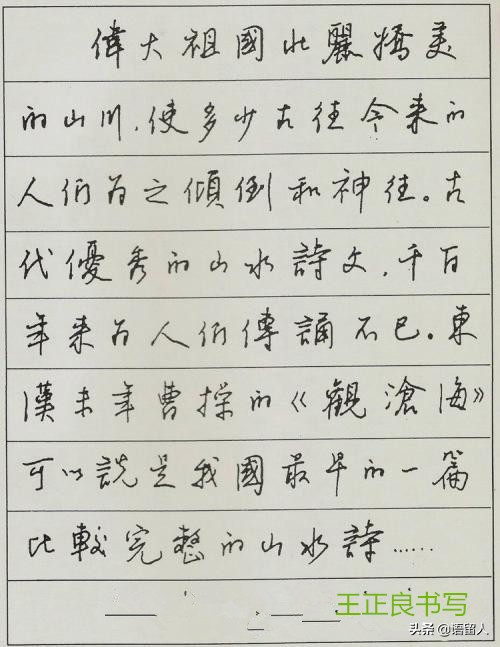 偉大祖國壯麗嬌美
的山川,使多少古往今来的
人们為之傾倒和神往。古
代優秀的山水詩文,千百
年来為人们傳誦不已。東
漢末年曹操的《觀滄海》
可以説是我國最早的一篇
比較完整的山水詩……
王正良书写
头条 @语留人